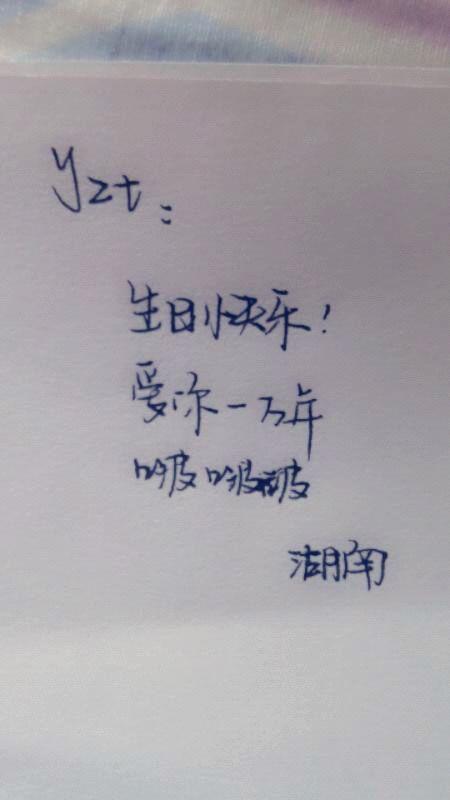 yzt:
生日快乐!
爱你一万年
啵啵啵
湖南